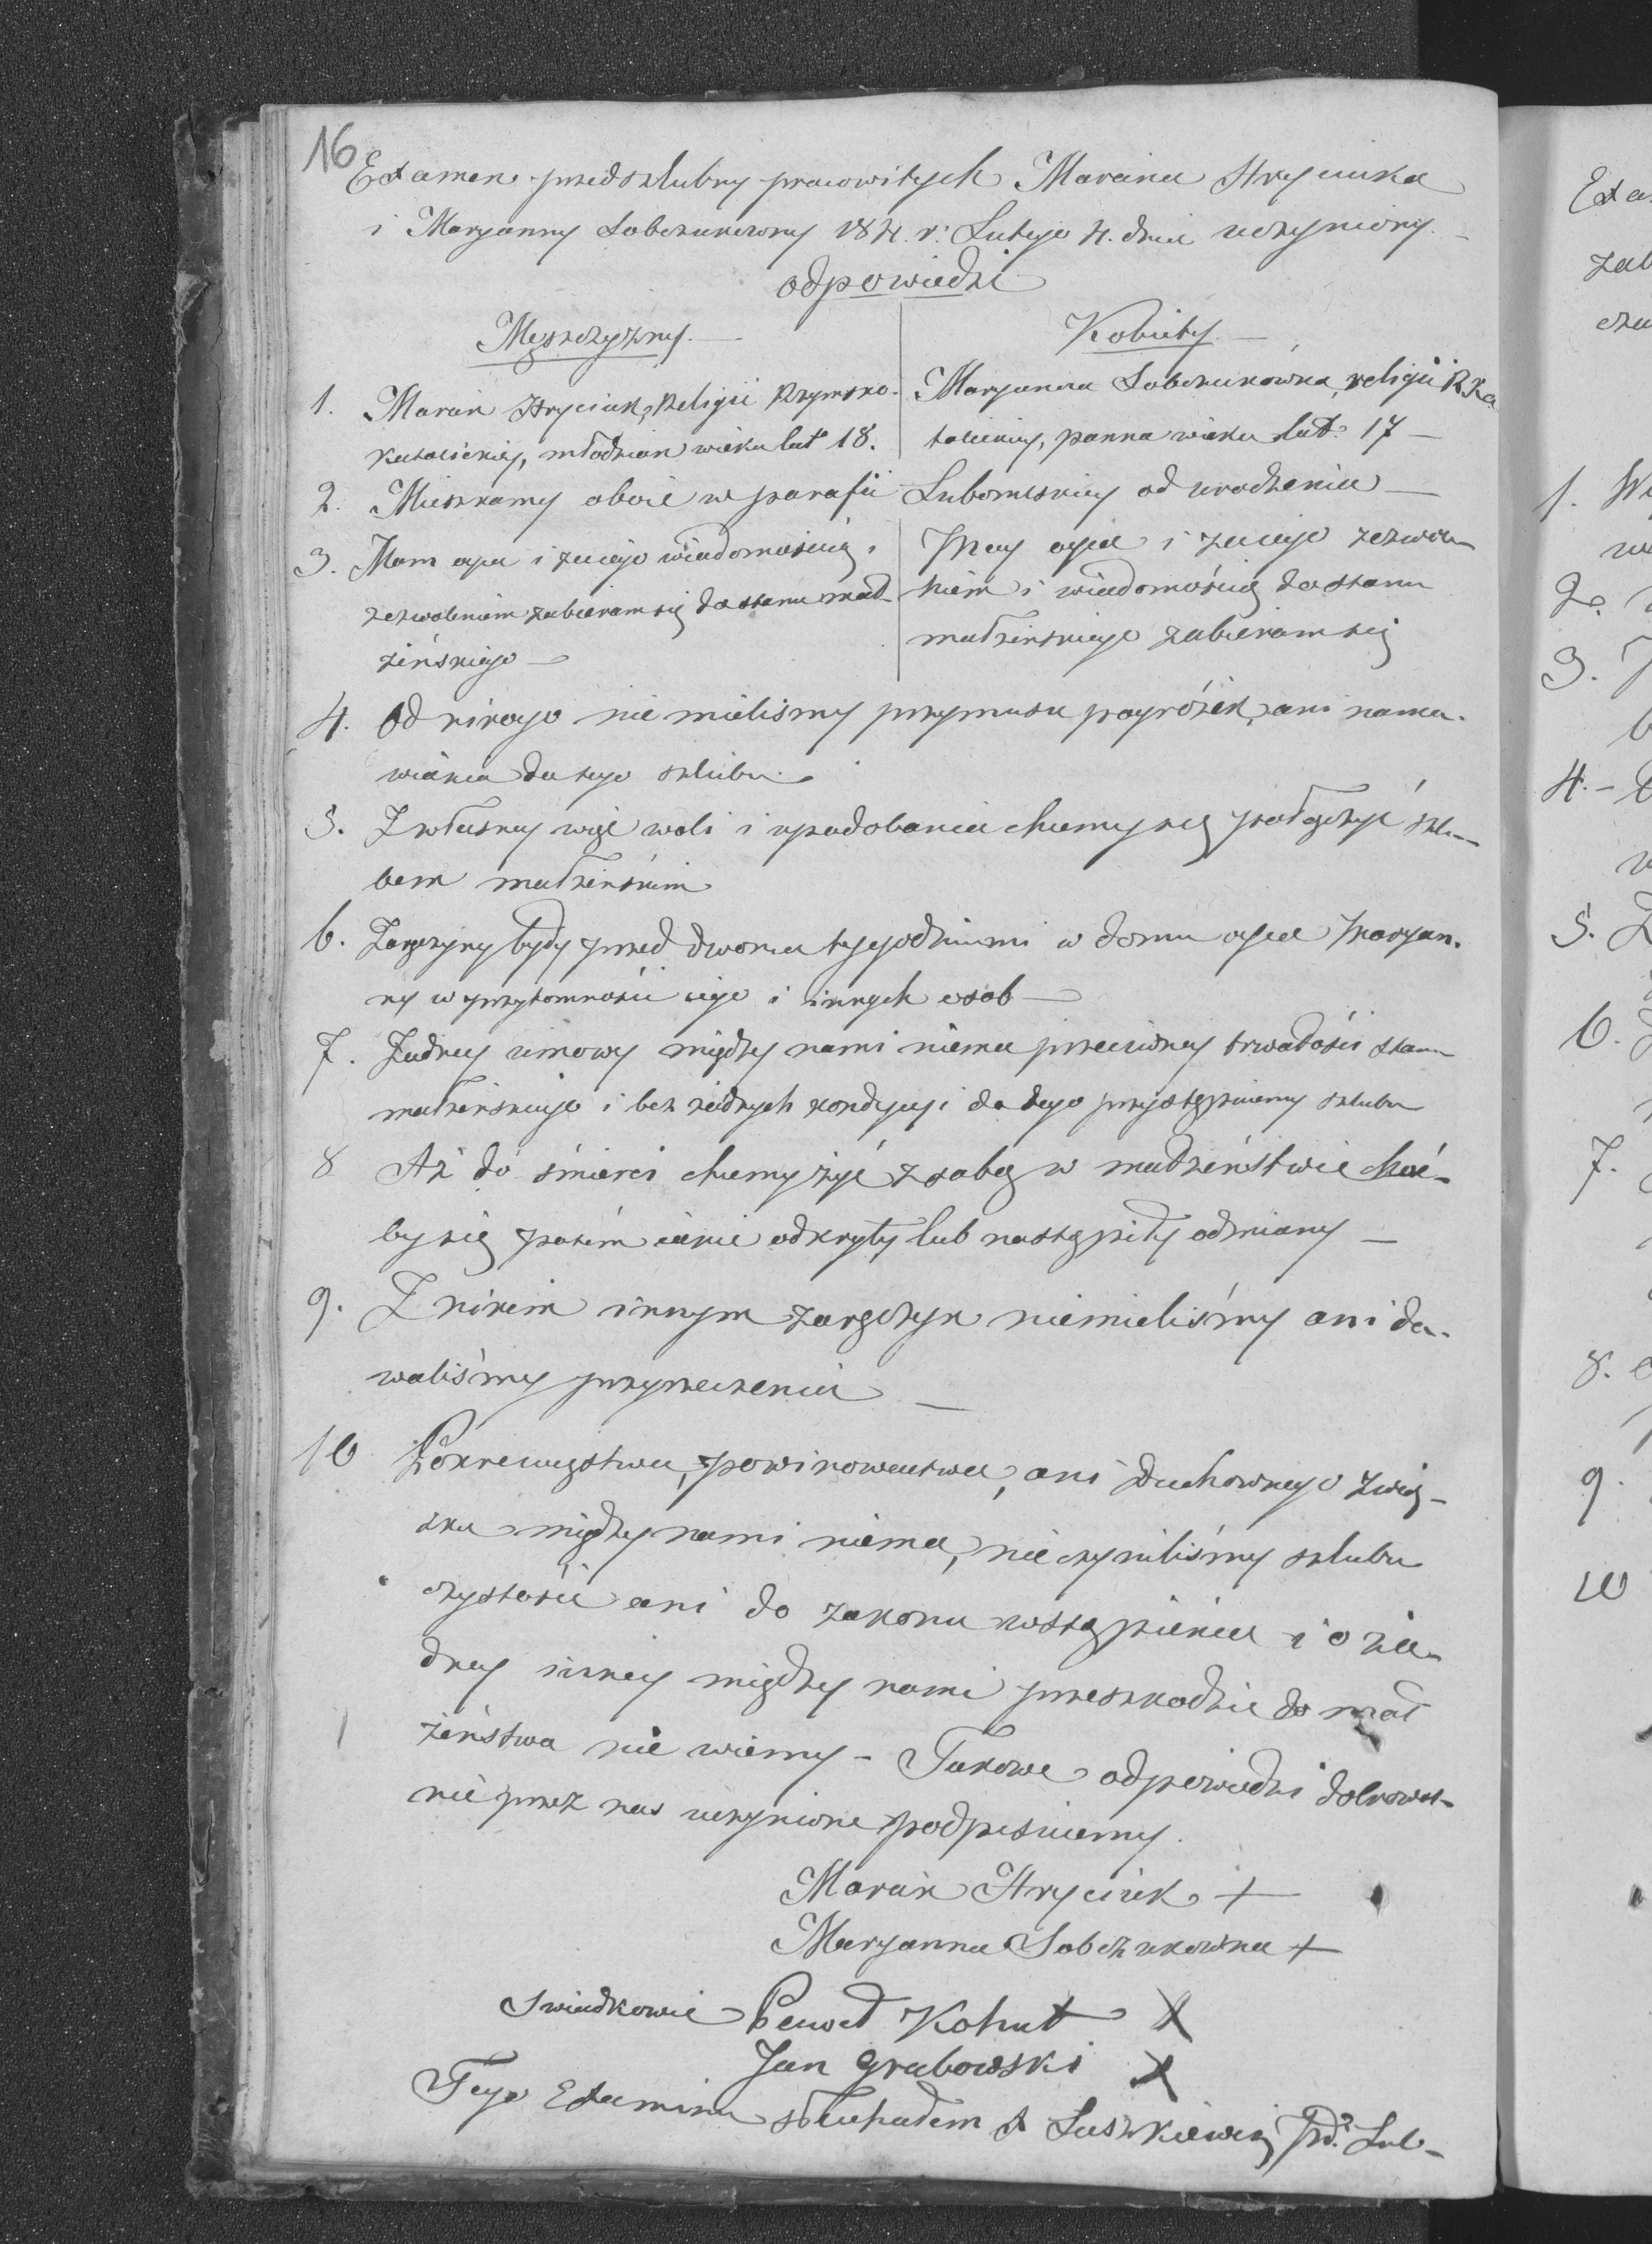 16
Examen przedszlubny pracowitych Marcina Hryciuka
i Maryanny Sobczukowny 184. r: Lutego 4. dnia uczyniony.
odpowiedzi
Męszczyzny.
Kobiety.
1. Marcin Hryciuk, Religii Rzymsko-
katolickiey, młodzian wieku lat 18.
Maryanna Sobczukówna, religii R Ka
tolickiey, panna wieku lat 17
2. Mieszkamy oboie w parafii Lubomlskiey od urodzenia
3. Mam oyca i z iego wiadomością i
zezwoleniem zabieram się do stanu mał-
żeńskiego
Mam oyca i z iego zezwole-
niem i wiadomością do stanu
małżeńskiego zabieram się
4. Od nikogo nie mieliśmy przymusu pogróżek, ani nama-
wiania do tego szlubu.
5. Z własney więc woli i upodobania chcemy się połączyć szlu-
bem małżeńskim
6. Zaręczyny były przed dwoma tygodniami w domu oyca Maryan-
ny w przytomności iego i innych osob
7. Żadney umowy między nami niema przeciwney trwałości stanu
małżeńskiego i bez żadnych kondycyi do tego przystępuiemy szlubu
8 Aż do śmierci chcemy żyć z sobą w małżeństwie choć-
by się potém iakie odkryły lub nastąpiły odmiany
9. Z nikim innym zaręczyn niemieliśmy ani da-
waliśmy przyrzeczenia
10 Pokrewięstwa, powinowactwa, ani duchownego związ-
ku między nami niema, nie czyniliśmy szlubu
czystości ani do zakonu wstąpienia i o ża-
dney inney między nami przeszkodzie do mał
żeństwa nie wiemy - Takowe odpowiedzi dobrowol-
nie przez nas uczynione podpisuiemy.
Marcin Hryciuk +
Maryanna Sobczukowna +
Swiadkowie Paweł Kohut X
Jan Grabowski X
Tego Examinu słuchałem A Luszkiewicz Pd. Lub-
Exa
zab
1. W
2.
3.
4. -
5. Z
6.
7.
8.
9
10